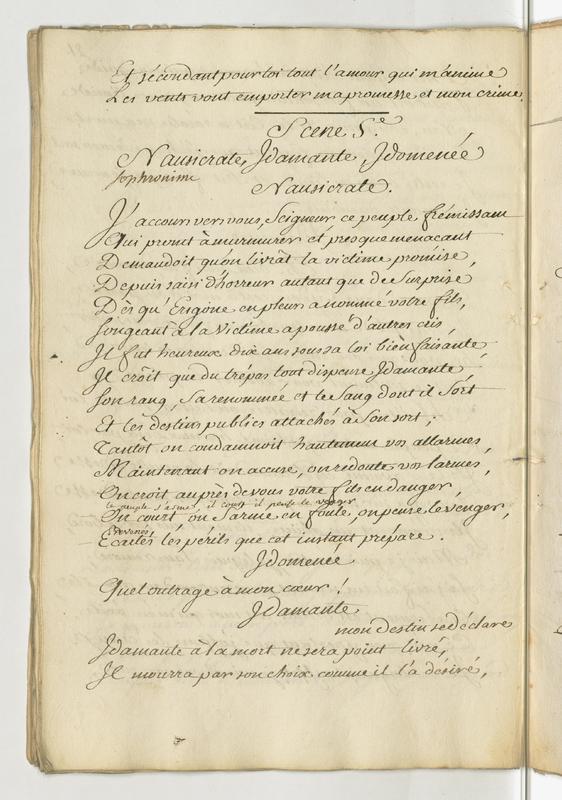 Et sécondant pour toi tout l'amour qui m'anime
Les vents vont emporter ma promesse et mon crime.
Scene 5.e
Nausicrate, Idamante, Idomenée
sophronime
Nausicrate.
J'accours vers vous, Seigneur ce peuple frémissant
Qui promt à murmurer et presque menaçant
Demandoit qu'on livrât la victime promise,
Depuis saisi d'horreur autant que de Surprise
Dès qu'Erigone en pleurs a nommé votre fils,
Songeant à la Victime a poussé d'autres cris,
Il fut heureux dix ans sous sa loi bienfaisante
Il crôit que du trépas tout dispense Idamante,
Son rang, Sa renommée et le Sang dont il Sort
Et les destins publics attachés à Son sort;
Tantôt on condamnoit hautement vos allarmes,
Maintenant on accuse, on redoute vos larmes,
On croit auprès de vous votre fils en danger,
le peuple s'arme, il court il pense le venger
On court on S'arme en foule, on pense le venger,
Prevenés
Ecartés les perils que cet instant prépare.
Idomenée
Quel outrage à mon cœur!
Idamante
mon destin se déclare
Idamante à la mort ne sera point livré,
Il mourra par son choix comme il l'a désiré,